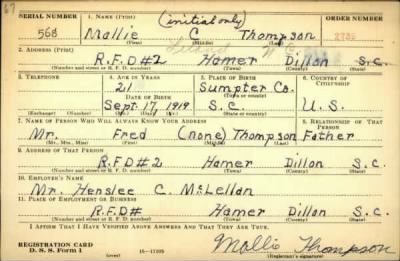 67
SERIAL NUMBER 1. NAME (Print) (initial only) ORDER NUMBER
568 Mollie C Thompson 2739
(First) (Middle) (Last)
2. ADDRESS (Print)
R.F.D#2 Hamer Dillon S.C.
(Number and street or R. F. D. number) (Town) (County) (State)
3. TELEPHONE 4. AGE IN YEARS 5. PLACE OF BIRTH 6. COUNTRY OF CITIZENSHIP
21 Sumpter Co.
DATE OF BIRTH (Town or county)
Sept. 17, 1919 S.C. U.S.
(Exchange) (Number) (Mo.) (Day) (Yr.) (State or country)
7. NAME OF PERSON WHO WILL ALWAYS KNOW YOUR ADDRESS 8. RELATIONSHIP OF THAT PERSON
Mr. Fred (none) Thompson Father
(Mr., Mrs., Miss) (First) (Middle) (Last)
9. ADDRESS OF THAT PERSON
R.F.D#2 Hamer Dillon S.C.
(Number and street or R. F. D. number) (Town) (County) (State)
10. EMPLOYER'S NAME
Mr. Henslee C. McLellan
11. PLACE OF EMPLOYMENT OR BUSINESS
R.F.D.# Hamer Dillon S.C.
(Number and street or R. F. D. number) (Town) (County) (State)
I AFFIRM THAT I HAVE VERIFIED ABOVE ANSWERS AND THAT THEY ARE TRUE.
REGISTRATION CARD
D. S. S. Form 1 (over) Mollie Thompson